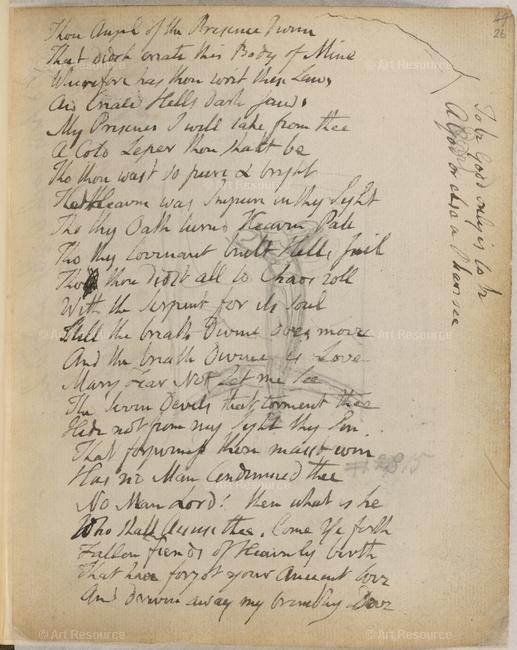 49
26
Thou Angel of the Presence Divine
That didst create this Body of Mine
Wherefore has thou writ these Laws
And Created Hells dark jaws
My Presence I will take from thee
A Cold Leper thou shalt be
Tho thou wast so pure & bright
That Heaven was Impure in thy Sight
Tho thy Oath turnd Heaven Pale
Tho thy Covenant built Hells Jail
Tho thou didst all to Chaos roll
With the Serpent for its soul
Still the breath Divine does move
And the breath Divine is Love
Mary Fear Not Let me see
The Seven Devils that torment thee
Hide not from my Sight thy Sin
That forgiveness thou maist win
Has no Man Condemned thee
No Man Lord! then what is he
Who shall Accuse thee. Come Ye forth
Fallen fiends of Heavenly birth
That have forgot your Ancient love
And driven away my trembling Dove
To be Good only is to be
A God or else a Pharisee
© Art Resource